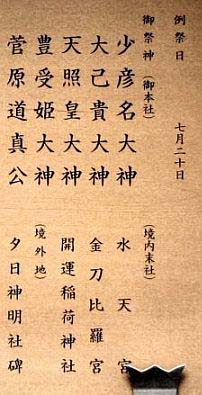 例祭日　七月二十日
御祭神（御本社）
少彦名大神
大己貴大神
天照皇大神
豊受姫大神
菅原道真公
（境内末社）
水天宮
金刀比羅宮
開運稲荷神社
（境外地）
夕日神明社碑